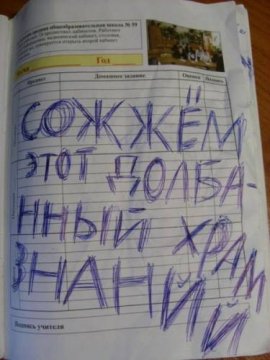 общеобразовательная школа № 59
Год
Предмет Домашнее задание Оценка Подпись
СОЖЖЁМ
ЭТОТ ДОЛБА-
ННЫЙ ХРАМ
ЗНАНИЙ Й
Подпись учителя